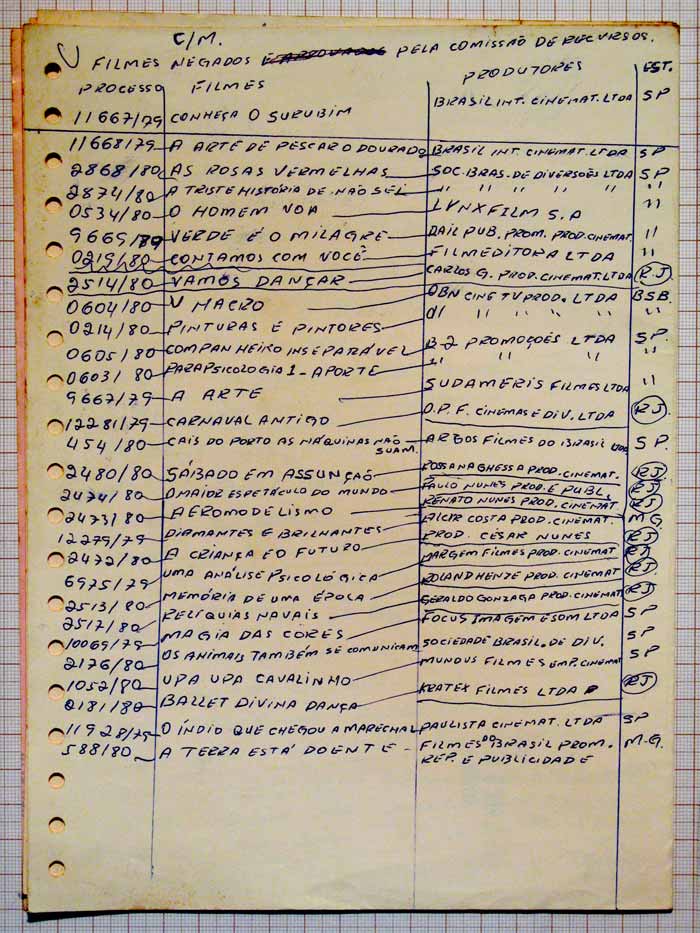 C/M.
FILMES NEGADOS E APROVADOS PELA COMISSÃO DE RECURSOS.
PROCESSO FILMES PRODUTORES EST.
11667/79 CONHEÇA O SURUBIM BRASIL INT. CINEMAT. LTDA SP
11668/79 A ARTE DE PESCAR O DOURADO BRASIL INT. CINEMAT. LTDA SP
2868/80 AS ROSAS VERMELHAS SOC. BRAS. DE DIVERSÕES LTDA SP
2874/80 A TRISTE HISTÓRIA DE NÃO SEI " " " " "
0534/80 O HOMEM VOA LYNXFILM S.A "
9669/79 VERDE É O MILAGRE PUB. PROM. PROD. CINEMAT. "
0219/80 CONTAMOS COM VOCÊ FILMEDITORA LTDA "
2514/80 VAMOS DANÇAR CARLOS G. PROD. CINEMAT. LTDA RJ
0604/80 V MACRO OBN CINE TV PROD. LTDA BSB.
0214/80 PINTURAS E PINTORES " " " "
0605/80 COMPANHEIRO INSEPARÁVEL B-2 PROMOÇÕES LTDA SP.
0603/80 PARAPSICOLOGIA 1 - APORTE " " " "
9667/79 A ARTE SUDAMERIS FILMES LTDA "
12281/79 CARNAVAL ANTIGO O.P.F. CINEMAS E DIV. LTDA RJ.
454/80 CAIS DO PORTO AS MÁQUINAS NÃO SUAM. ARGOS FILMES DO BRASIL LTDA SP.
2480/80 SÁBADO EM ASSUNÇÃO ROSSANA GHESSA PROD. CINEMAT. RJ
2474/80 O MAIOR ESPETÁCULO DO MUNDO PAULO NUNES PROD. E PUBL. RJ
2473/80 AEROMODELISMO RENATO NUNES PROD. CINEMAT RJ
12279/79 DIAMANTES E BRILHANTES ALCIR COSTA PROD. CINEMAT. M.G.
2472/80 A CRIANÇA E O FUTURO PROD. CÉSAR NUNES RJ
6975/79 UMA ANÁLISE PSICOLÓGICA MARGEM FILMES PROD. CINEMAT RJ
2513/80 MEMÓRIA DE UMA ÉPOCA ROLAND HENZE PROD. CINEMAT RJ
2517/80 RELÍQUIAS NAVAIS GERALDO GONZAGA PROD. CINEMAT RJ
10069/79 MAGIA DAS CORES FOCUS IMAGEM E SOM LTDA SP
2176/80 OS ANIMAIS TAMBÉM SE COMUNICAM SOCIEDADE BRASIL. DE DIV. SP
1052/80 UPA UPA CAVALINHO MUNDUS FILMES EMP. CINEMAT SP
0181/80 BALLET DIVINA DANÇA KRATEX FILMES LTDA RJ
11928/79 O ÍNDIO QUE CHEGOU A MARECHAL PAULISTA CINEMAT. LTDA SP
588/80 A TERRA ESTÁ DOENTE - FILMES DO BRASIL PROM. M.G.
REP. E PUBLICIDADE